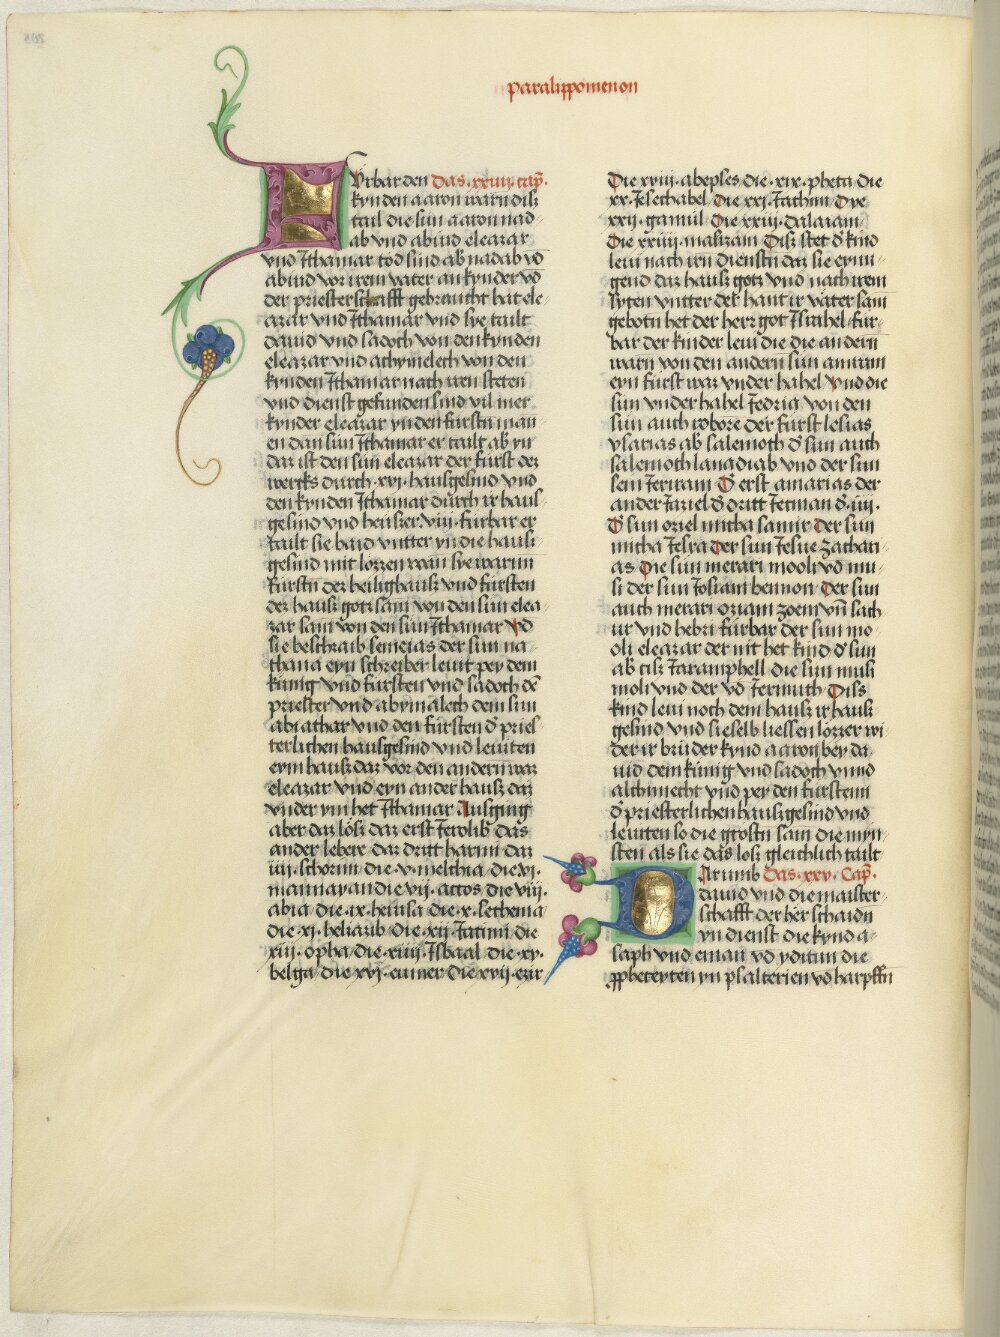 paralippomenon
Fürbar den das .xxiiij. cap̄.
kynden aaron warn disz
tail die sün aaron nad-
ab vnd abiud eleazar
vnd Ithamar tod sind ab nadab vō
abiud vor irem vater an kynder vō
der priesterschafft gebraucht hat ele-
azar vnd Ithamar vnd sye tailt
dauid vnd sadoch von den kynden
eleazar vnd achymelech von den
kynden Ithamar nach iren steten
vnd dienst gefunden sind vil mer
kynder eleazar yn den fürstn man
en dan sün Ithamar er tailt ab yn
daz ist den sün eleazar der fürst dez
wercks durch .xvj. hausgesind vnd
den kynden Ithamar durch ir haus-
gesind vnd heuszer .viij. fürbar er
tailt sie baid vntter yn die hausz
gesind mit lözzen wan sye warnn
fürstn dez heilighausz vnd fürsten
dez hausz gotz sam von den sün elea-
zar sam von den sün Ithamar vō
sie beschraib semeias der sün na-
thana eyn schreiber leuit pey dem
künig vnd fürsten vnd sadoch dē
priester vnd abymalech dem sün
abiathar vnd den fürsten d' pries-
terlichen hausgesind vnd leuiten
eym hausz daz vor den andern waz
eleazar vnd eyn ander hausz daz
vnder ym het Ithamar Ausging
aber daz lösz daz erst Ieroiib das
ander Iedeie daz dritt harim daz
iiij. schorim die .v. melchia die .vj.
maimay an die vij. accos die viij.
abia die .ix. heiusa die .x. sechema
die .xj. heliazib die .xij. Iacimi die
xiij. opha die .xiiij. Isbaal die .xv.
belga die .xvj. emner die .xvij. ezir
Die xviij. abepses die .xix. pheta die
.xx. Iesechabel Die xxj. Iachim Dye
xxij. gamül Die xxiij. dalaiam
Die xxiiij. mahzam Disz stet d' kind
leui nach irn dienstn daz sie eynn-
gend daz hausz gotz vnd nach irem
syten vntter der hant ir väter sam
gebotn het der herr got Israhel für-
bar der kinder leui die die an dern
warn von den andern sün amram
eyn fürst waz vnder habel vnd die
sün vnder habel Iedria von den
sün auch robore der fürst Iesias
ysarias ab salemoth d' sün auch
salemoth Ianadiab vnd der sün
sein Ieriram D' erst amarias der
ander Iaziel d' dritt Ietman d' .iiij.
D' sün oziel micha samir Der sün
micha Iesra Der sün Iesue zachari-
as Die sün merari mooli vō mu-
si der sün Iosiam bennon Der sün
auch merari oziam zoem vn̄ sach
ur vnd hebri fürbar der sün mo-
oli eleazar der nit het kind d' sün
ab cisz Iaramphell die sün musi
moli vnd der vō Iermuth Diss
kind leui noch dem hausz ir hausz
gesind vnd sieselb liessen lözzer wi-
der ir brüder kynd aaron bey da-
uid dem künig vnd sadoch vnnd
alchimecht vnd pey den fürstenn
d' priesterlichen hausz gesind vnd
leuiten so die grostn sam die myn-
sten als sie das losz gleichlich tailt
Darumb das .xxv. Cap̄.
dauid vnd die maister-
schafft der her schaidn
yn dienst die kynd a-
saph vnd eman vō yditun die
ppheteyten yn psalterien vō harpffn